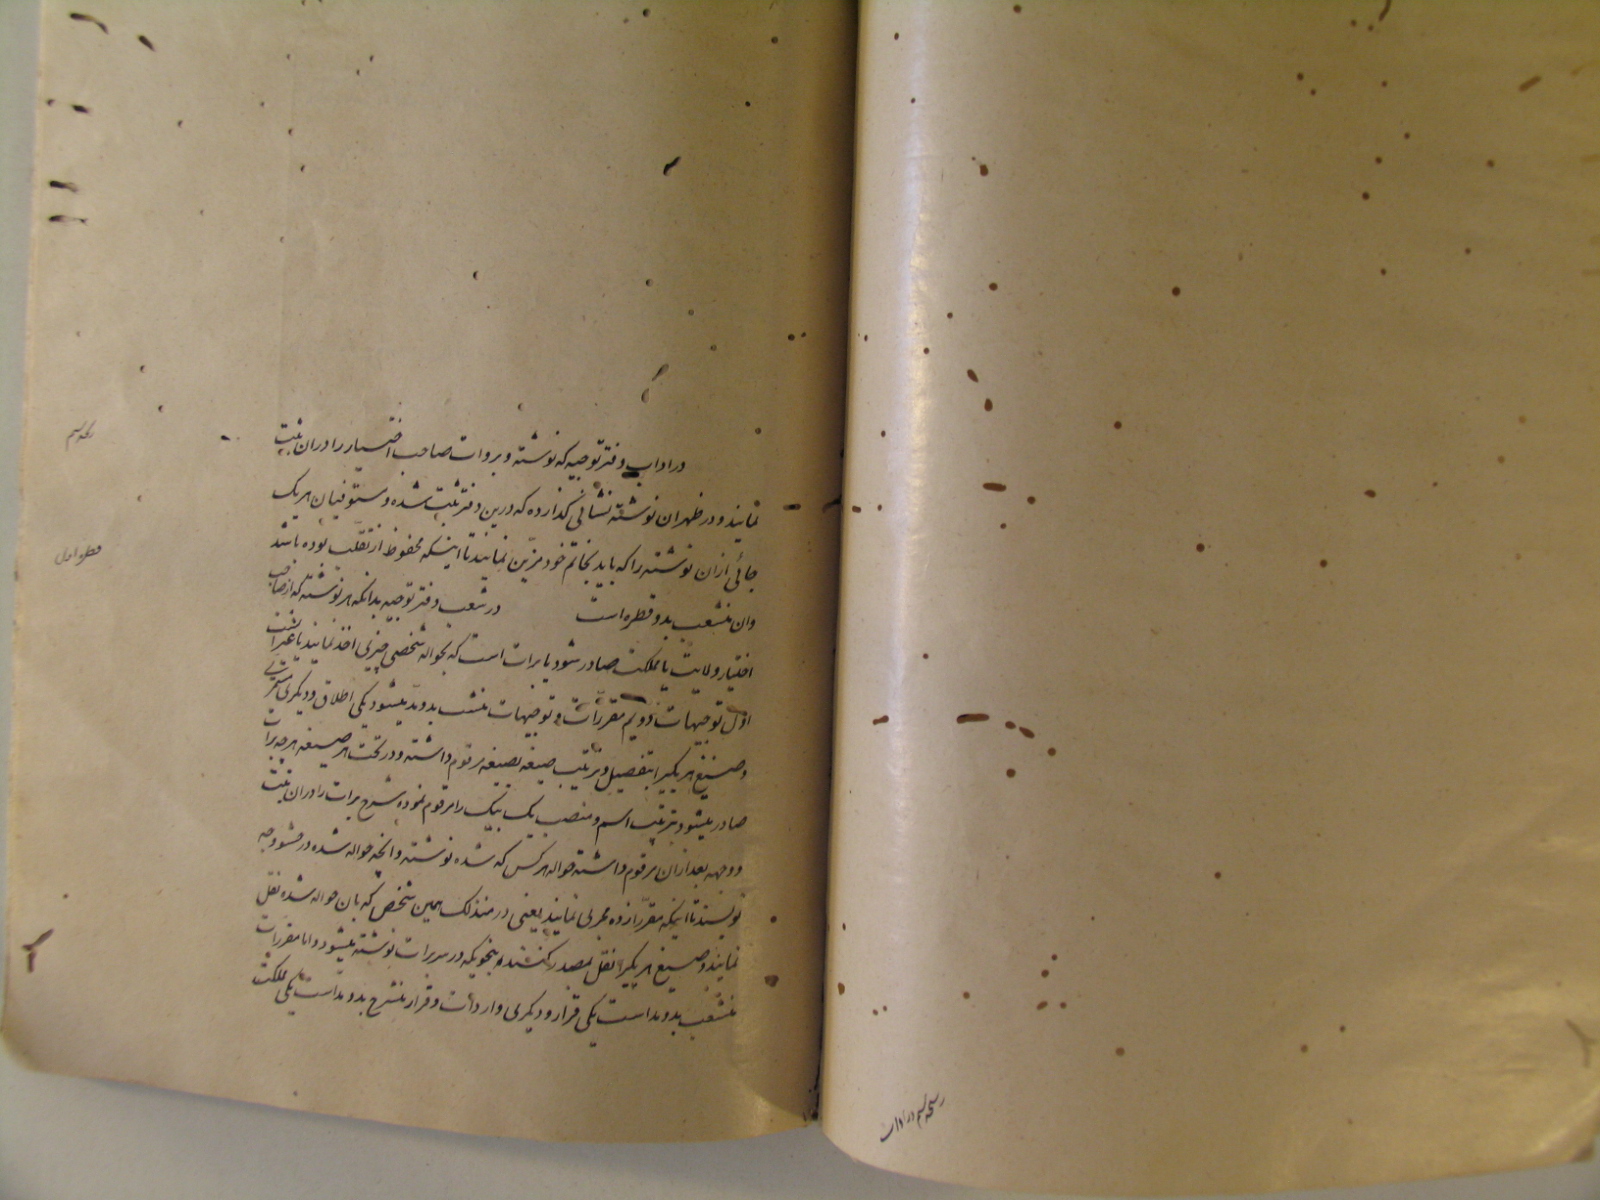 در اداب دفتر توجیه که نوشته و بروات صاحب اختیار را در ان ثبت
نمایند و در ظهر ان نوشته نشانی گذارده که درین دفتر ثبت شده و مستوفیان هر یک
جائی از ان نوشته را که باید بخاتم خود مزین نمایند تا اینکه محفوظ از تقلب بوده باشد
وان منشعب بدو قطره است در شعب دفتر توجیه بدانکه هر نوشته که از صاحب
اختیار ولایت یا مملکت صادر شود یا برات است که بحواله شخصی چیزی اخذ نمایند یا غیر انست
اول توجیهات دویم مقررات و توجیهات منشعب بدو مد میشود یکی اطلاق و دیگری مقرری
و صیغ هر یکیرا بتفصیل و ترتیب صیغه بصیغه مرقوم داشته و در تحت هر صیغه هر چه برات
صادر میشود بترتیب اسم و منصب یک بیک را مرقوم نموده شرح برات را در ان ثبت
و وجهه بعد از ان مرقوم داشته حواله هر کس که شده نوشته و انچه حواله شده در حشو وجه
نویسند تا اینکه مقررا زده مجری نمایند یعنی در منذلک همین شخص که بان حواله شده نقل
نمایند و صیغ هر یکیرا نقل بمصدر کننده بنحویکه در سر برات نوشته میشود و اما مقررات
منشعب بدو مد است یکی قرار و دیگری واردات و قرار منشرح بدو مد است یکی مملکت
قطره اول
رشحه سم در اداب